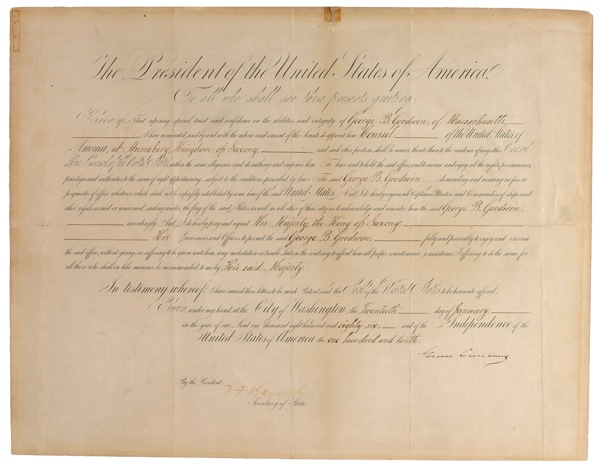 The President of the United States of America,
To all who shall see these presents, greeting:
Know ye, That reposing special trust and confidence in the abilities and integrity of George B. Goodwin, of Massachusetts
I have nominated, and by and with the advice and consent of the Senate do appoint him Consul of the United States of
America, at Annaberg, Kingdom of Saxony, and such other parts as shall be nearer thereto than to the residence of any other Consul
or Vice Consul of the United States within the same allegiance; and do authorize and empower him To have and to hold the said office, and to exercise and enjoy all the rights, preeminences,
privileges and authorities to the same of right appertaining, subject to the conditions prescribed by law: The said George B. Goodwin, demanding and receiving no fees or
perquisites of office whatever, which shall not be expressly established by some law of the said United States. And I do hereby enjoin all Captains, Masters and Commanders of ships and
other vessels, armed or unarmed, sailing under the flag of the said States, as well as all other of their citizens to acknowledge and consider him the said George B. Goodwin,
accordingly. And I do hereby pray and request His Majesty, the King of Saxony,
His Governors and Officers to permit the said George B. Goodwin, fully and peaceably to enjoy and exercise
the said office, without giving, or suffering to be given unto him, any molestation or trouble, but on the contrary to afford him all proper countenance and assistance; I offering to do the same for
all those who shall in like manner be recommended to me by His said Majesty.
In testimony whereof, I have caused these letters to be made Patent, and the Seal of the United States to be hereunto affixed.
Given under my hand, at the City of Washington, the Twentieth day of January,
in the year of our Lord one thousand eight hundred and eighty six, and of the Independence of the
United States of America, the one hundred and tenth.
Grover Cleveland
By the President:
T. F. Bayard
Secretary of State.